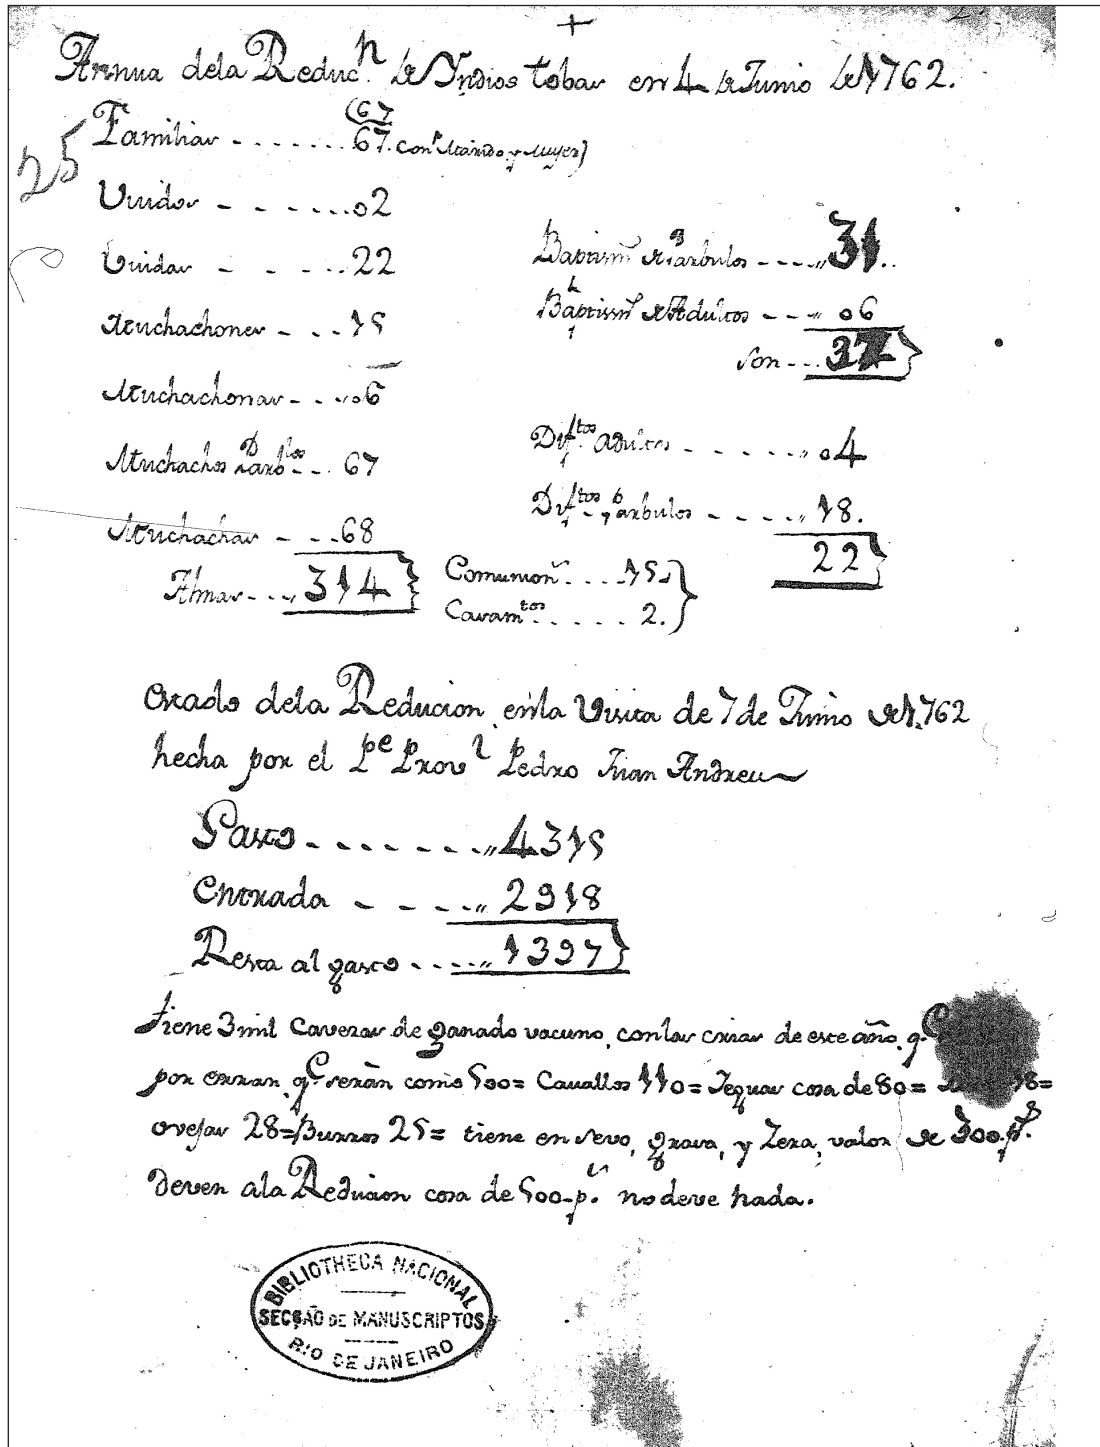 +
Annua dela Reduc.n de Yndios tobas en 4 de Junio de 1762.
25
(67
Familias - - - - - - - 67. con.n Marido y Muger)
Viudos - - - - - - - 02
Viudas - - - - - 22
Muchachones - - - 15
Muchachonas - - - 06
Muchachos Parb.los - - 67
Muchachas - - - 68
Almas - - - 314
Baptism.s de Parbulos - - - - 31.
Baptism.s de Adultos - - - 06
son - - - 37
Dif.tos adultos - - - - - - 04
Dif.tos parbulos - - - - 18.
22
Comunion.s . . . . 15.
Casam.tos . . . . . 2.
Estado dela Reducion, en la Visita de 7 de Junio de 1.762
hecha por el Pe Prov.l Pedro Juan Andreu
Gasto - - - - - - - 4315
Entrada - - - - - 2918
Resta al gasto - - - - 1397
tiene 3 mil Cavezas de ganado vacuno, con las crias de este año, q.e
por errar, q.e serán como 500 = Cavallos 110 = Yeguas cosa de 80 = 18 =
ovejas 28 = Burros 25 = tiene en sevo, grasa, y Zera, valor de 300. p.s
Deven ala Reducion cosa de 500. p.s no deve nada.
BIBLIOTHECA NACIONAL
SECÇÃO DE MANUSCRIPTOS
RIO DE JANEIRO